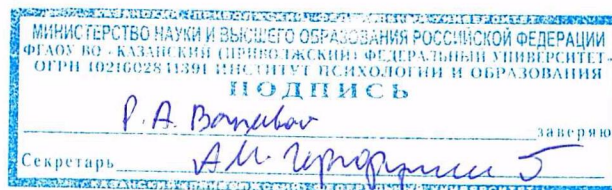 МИНИСТЕРСТВО НАУКИ И ВЫСШЕГО ОБРАЗОВАНИЯ РОССИЙСКОЙ ФЕДЕРАЦИИ
ФГАОУ ВО «КАЗАНСКИЙ (ПРИВОЛЖСКИЙ) ФЕДЕРАЛЬНЫЙ УНИВЕРСИТЕТ»
ОГРН 1021602841391 ИНСТИТУТ ПСИХОЛОГИИ И ОБРАЗОВАНИЯ
ПОДПИСЬ
Р. А.
заверяю
Секретарь А.М.